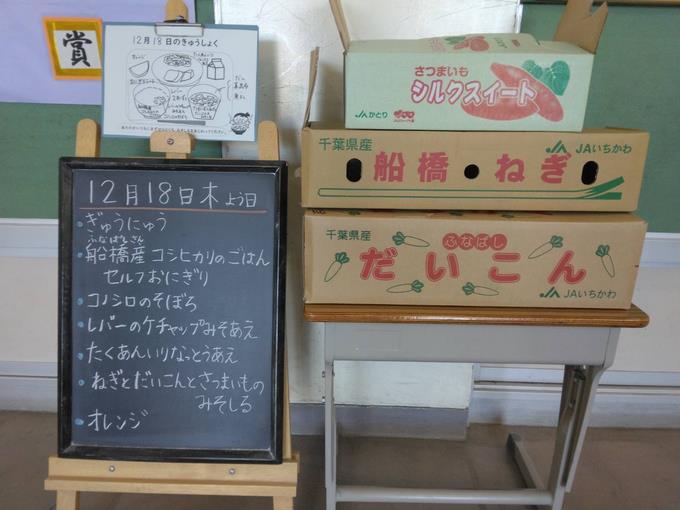 賞
12月18日のきゅうしょく
12月18日木よう日
ぎゅうにゅう
ふなばしさん
船橋産コシヒカリのごはん
セルフおにぎり
コノシロのそぼろ
レバーのケチャップみそあえ
たくあんいりなっとうあえ
ねぎとだいこんとさつまいもの
みそしる
オレンジ
さつまいも
シルクスイート
JAかとり
千葉県産
JAいちかわ
船橋・ねぎ
千葉県産
ふなばし
だいこん
JAいちかわ